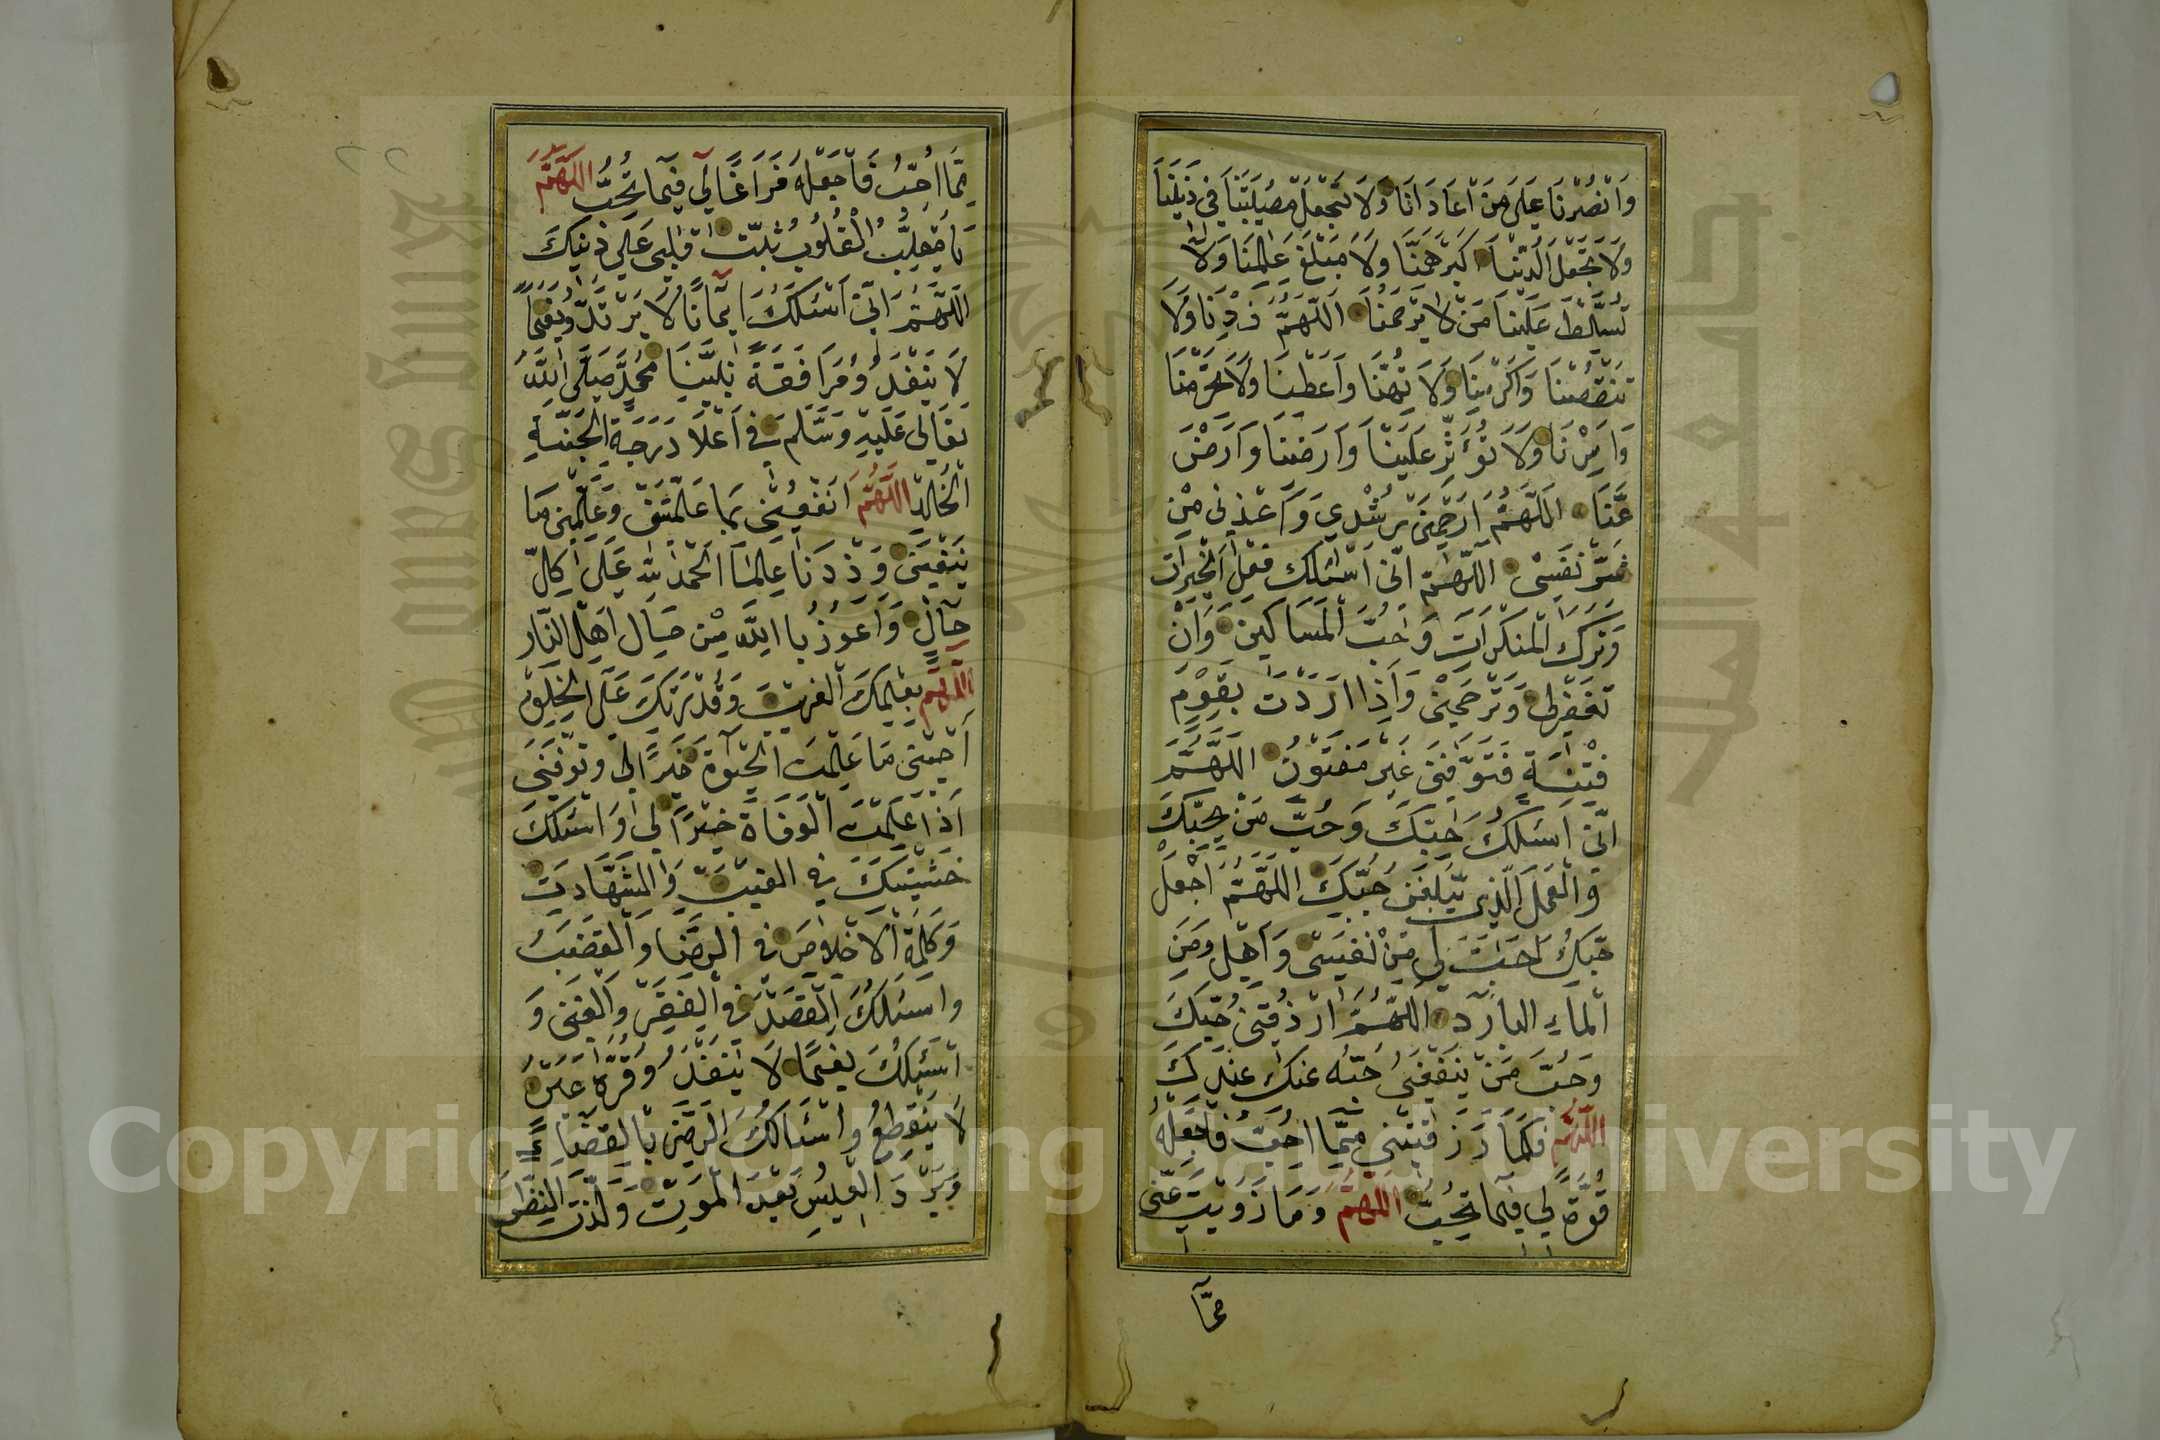 وَانْصُرْنَا عَلَى مَنْ اَعَادَانَا وَلَا تَجْعَلْ مُصِيبَتَنَا فِى دِينِنَا
وَلَا تَجْعَلِ الدُّنْيَا اَكْبَرَ هَمِّنَا وَلَا مَبْلَغَ عِلْمِنَا وَلَا
تُسَلِّطْ عَلَيْنَا مَنْ لَا يَرْحَمُنَا اَللّٰهُمَّ زِدْنَا وَلَا
تَنْقُصْنَا وَاَكْرِمْنَا وَلَا تُهِنَّا وَاَعْطِنَا وَلَا تَحْرِمْنَا
وَاٰثِرْنَا وَلَا تُؤْثِرْ عَلَيْنَا وَاَرْضِنَا وَارْضَ
عَنَّا اَللّٰهُمَّ ارْحَمْنِى بِرُشْدِي وَاَعِذْنِى مِنْ
شَرِّ نَفْسِى اَللّٰهُمَّ اِنِّى اَسْئَلُكَ فِعْلَ الْخَيْرَاتِ
وَتَرْكَ الْمُنْكَرَاتِ وَحُبَّ الْمَسَاكِينِ وَاَنْ
تَغْفِرَلِى وَتَرْحَمَنِى وَاِذَا اَرَدْتَ بِقَوْمٍ
فِتْنَةً فَتَوَفَّنِى غَيْرَ مَفْتُونٍ اَللّٰهُمَّ
اِنِّى اَسْئَلُكَ حُبَّكَ وَحُبَّ مَنْ يُحِبُّكَ
وَالْعَمَلَ الَّذِى يُبَلِّغُنِى حُبَّكَ اَللّٰهُمَّ اجْعَلْ
حُبَّكَ اَحَبَّ اِلَىَّ مِنْ نَفْسِى وَاَهْلِى وَمِنَ
الْمَاءِ الْبَارِدِ اَللّٰهُمَّ ارْزُقْنِى حُبَّكَ
وَحُبَّ مَنْ يَنْفَعُنِى حُبُّهُ عنك عِنْدَكَ
اَللّٰهُمَّ فَكَمَا رَزَقْتَنِى مِمَّا اُحِبُّ فَاجْعَلْهُ
قُوَّةً لِى فِيمَا تُحِبُّ اَللّٰهُمَّ وَمَا زَوَيْتَ عَنِّى
مِمَّا
مِمَّا اُحِبُّ فَاجْعَلْهُ فَرَاغًا لِى فِيمَا تُحِبُّ اَللّٰهُمَّ
يَا مُقَلِّبَ الْقُلُوبِ ثَبِّتْ قَلْبِى عَلَى دِينِكَ
اَللّٰهُمَّ اِنِّى اَسْئَلُكَ اِيمَانًا لَا يَرْتَدُّ وَنَعِيمًا
لَا يَنْفَدُ وَمُرَافَقَةَ نَبِيِّنَا مُحَمَّدٍ صَلَّى اللّٰهُ
تَعَالَى عَلَيْهِ وَسَلَّمَ فِى اَعْلَا دَرَجَةِ الْجَنَّةِ
الْخُلْدِ اَللّٰهُمَّ اَنْفَعْنِى بِمَا عَلَّمْتَنِى وَعَلِّمْنِى مَا
يَنْفَعُنِى وَزِدْنَا عِلْمًا اَلْحَمْدُ لِلّٰهِ عَلَى كُلِّ
حَالٍ وَاَعُوذُ بِا اللّٰهِ مِنْ حَالِ اَهْلِ النَّارِ
اَللّٰهُمَّ بِعِلْمِكَ الْغَيْبَ وَقُدْرَتِكَ عَلَى الْخَلْقِ
اَحْيِنِى مَا عَلِمْتَ الْحَيٰوةَ خَيْرًا لِى وَتَوَفَّنِى
اِذَا عَلِمْتَ الْوَفَاةَ خَيْرًا لِى وَاَسْئَلُكَ
خَشْيَتَكَ فِى الْغَيْبِ وَالشَّهَادَةِ
وَكَلِمَةَ الْاِخْلَاصِ فِى الرِّضَا وَالْغَضَبِ
وَاَسْئَلُكَ الْقَصْدَ فِى الْفَقْرِ وَالْغِنَى وَ
اَسْئَلُكَ نَعِيمًا لَا يَنْفَدُ وَقُرَّةَ عَيْنٍ
لَا يَنْقَطِعُ وَاَسْئَالُكَ الرِّضَى بِالْقَضَاءِ
وَبَرْدَ الْعَيْشِ بَعْدَ الْمَوْتِ وَلَذَّتَ النَّظَرِ
Copyright © King Saud University